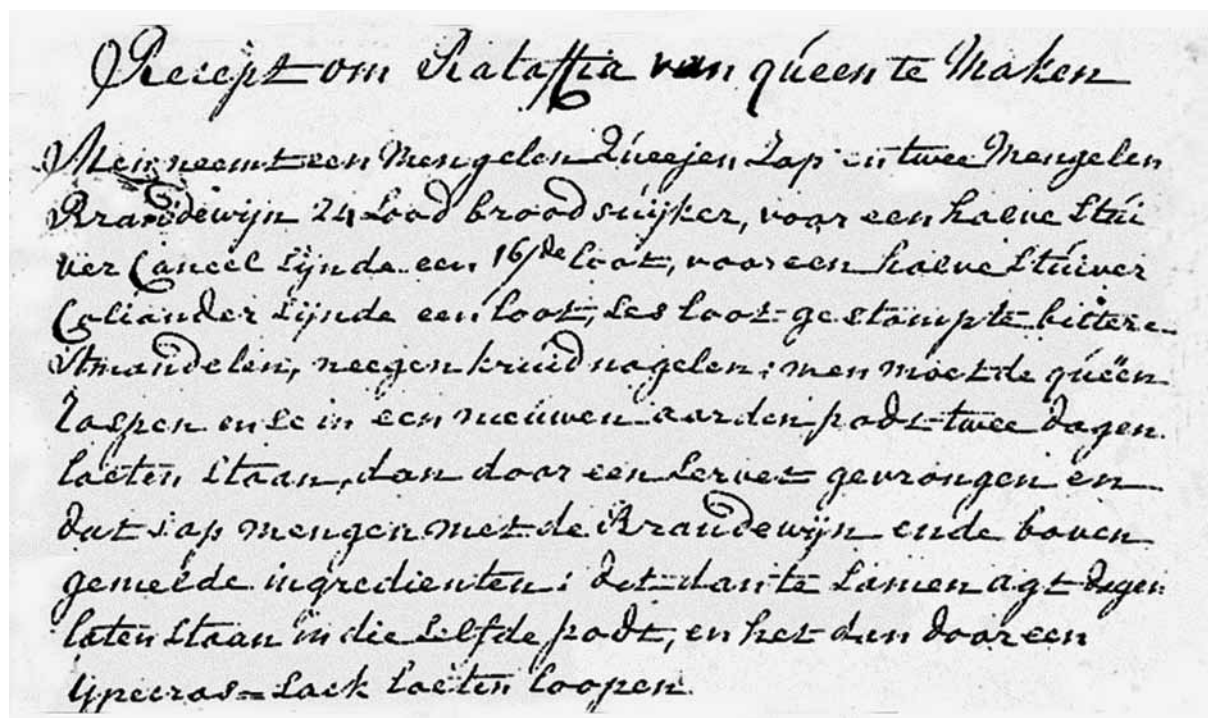 Recept om Rataffia van quéen te Maken
Men neemt een Mengelen Queejen Zap en twee Mengelen
Brandewijn 24 Lood brood suijker, voor een halve stui
ver Caneel sijnde een 16/de loot, voor een halve stuiver
Coliander sijnde een loot, ses loot gestampte bittere
Amandelen, neegen kruidnagelen; men moet de quëen
raspen en se in een nieuwen aarden podt twee dagen
laeten staan, dan door een servet gevrongen en
dat sap mengen met de Brandewijn ende boven
gemelde ingredienten; dit dan te samen agt dagen
laten staan in die selfde podt, en het dan door een
ypecras=sack laeten loopen.